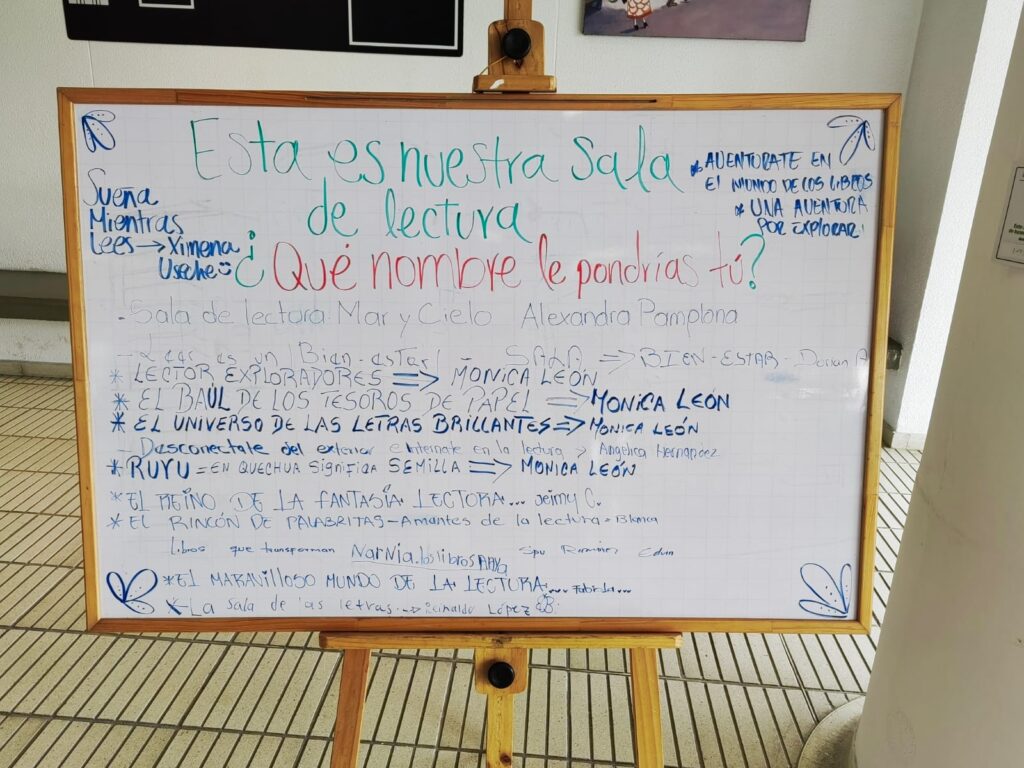 Esta es nuestra sala
de lectura
¿Qué nombre le pondrías tú?
Sueña
Mientras
Lees → Ximena
Useche
* AVENTURATE EN
El MUNDO DE LOS LIBROS
* UNA AVENTURA
POR EXPLORAR
- Sala de lectura Mar y Cielo Alexandra Pamplona
- Leer es un Bien-estar - SALA ⇒ BIEN-ESTAR - Dorian
* LECTOR EXPLORADORES ⇒ MONICA LEÓN
* EL BAÚL DE LOS TESOROS DE PAPEL ⇒ MONICA LEÓN
* EL UNIVERSO DE LAS LETRAS BRILLANTES ⇒ MONICA LEÓN
- Desconectate del exterior e Internate en la lectura > Angelica Hernandez
* RUYU = EN QUECHUA SIGNIFICA SEMILLA ⇒ MONICA LEÓN
* EL REINO DE LA FANTASÍA LECTORA... Jeimy C.
* EL RINCÓN DE PALABRITAS - Amantes de la lectura = Blanca
Libros que transforman Narnia.los libros Ramirez
* El MARAVILLOSO MUNDO DE LA LECTURA....
* La sala de las letras → Reinaldo López